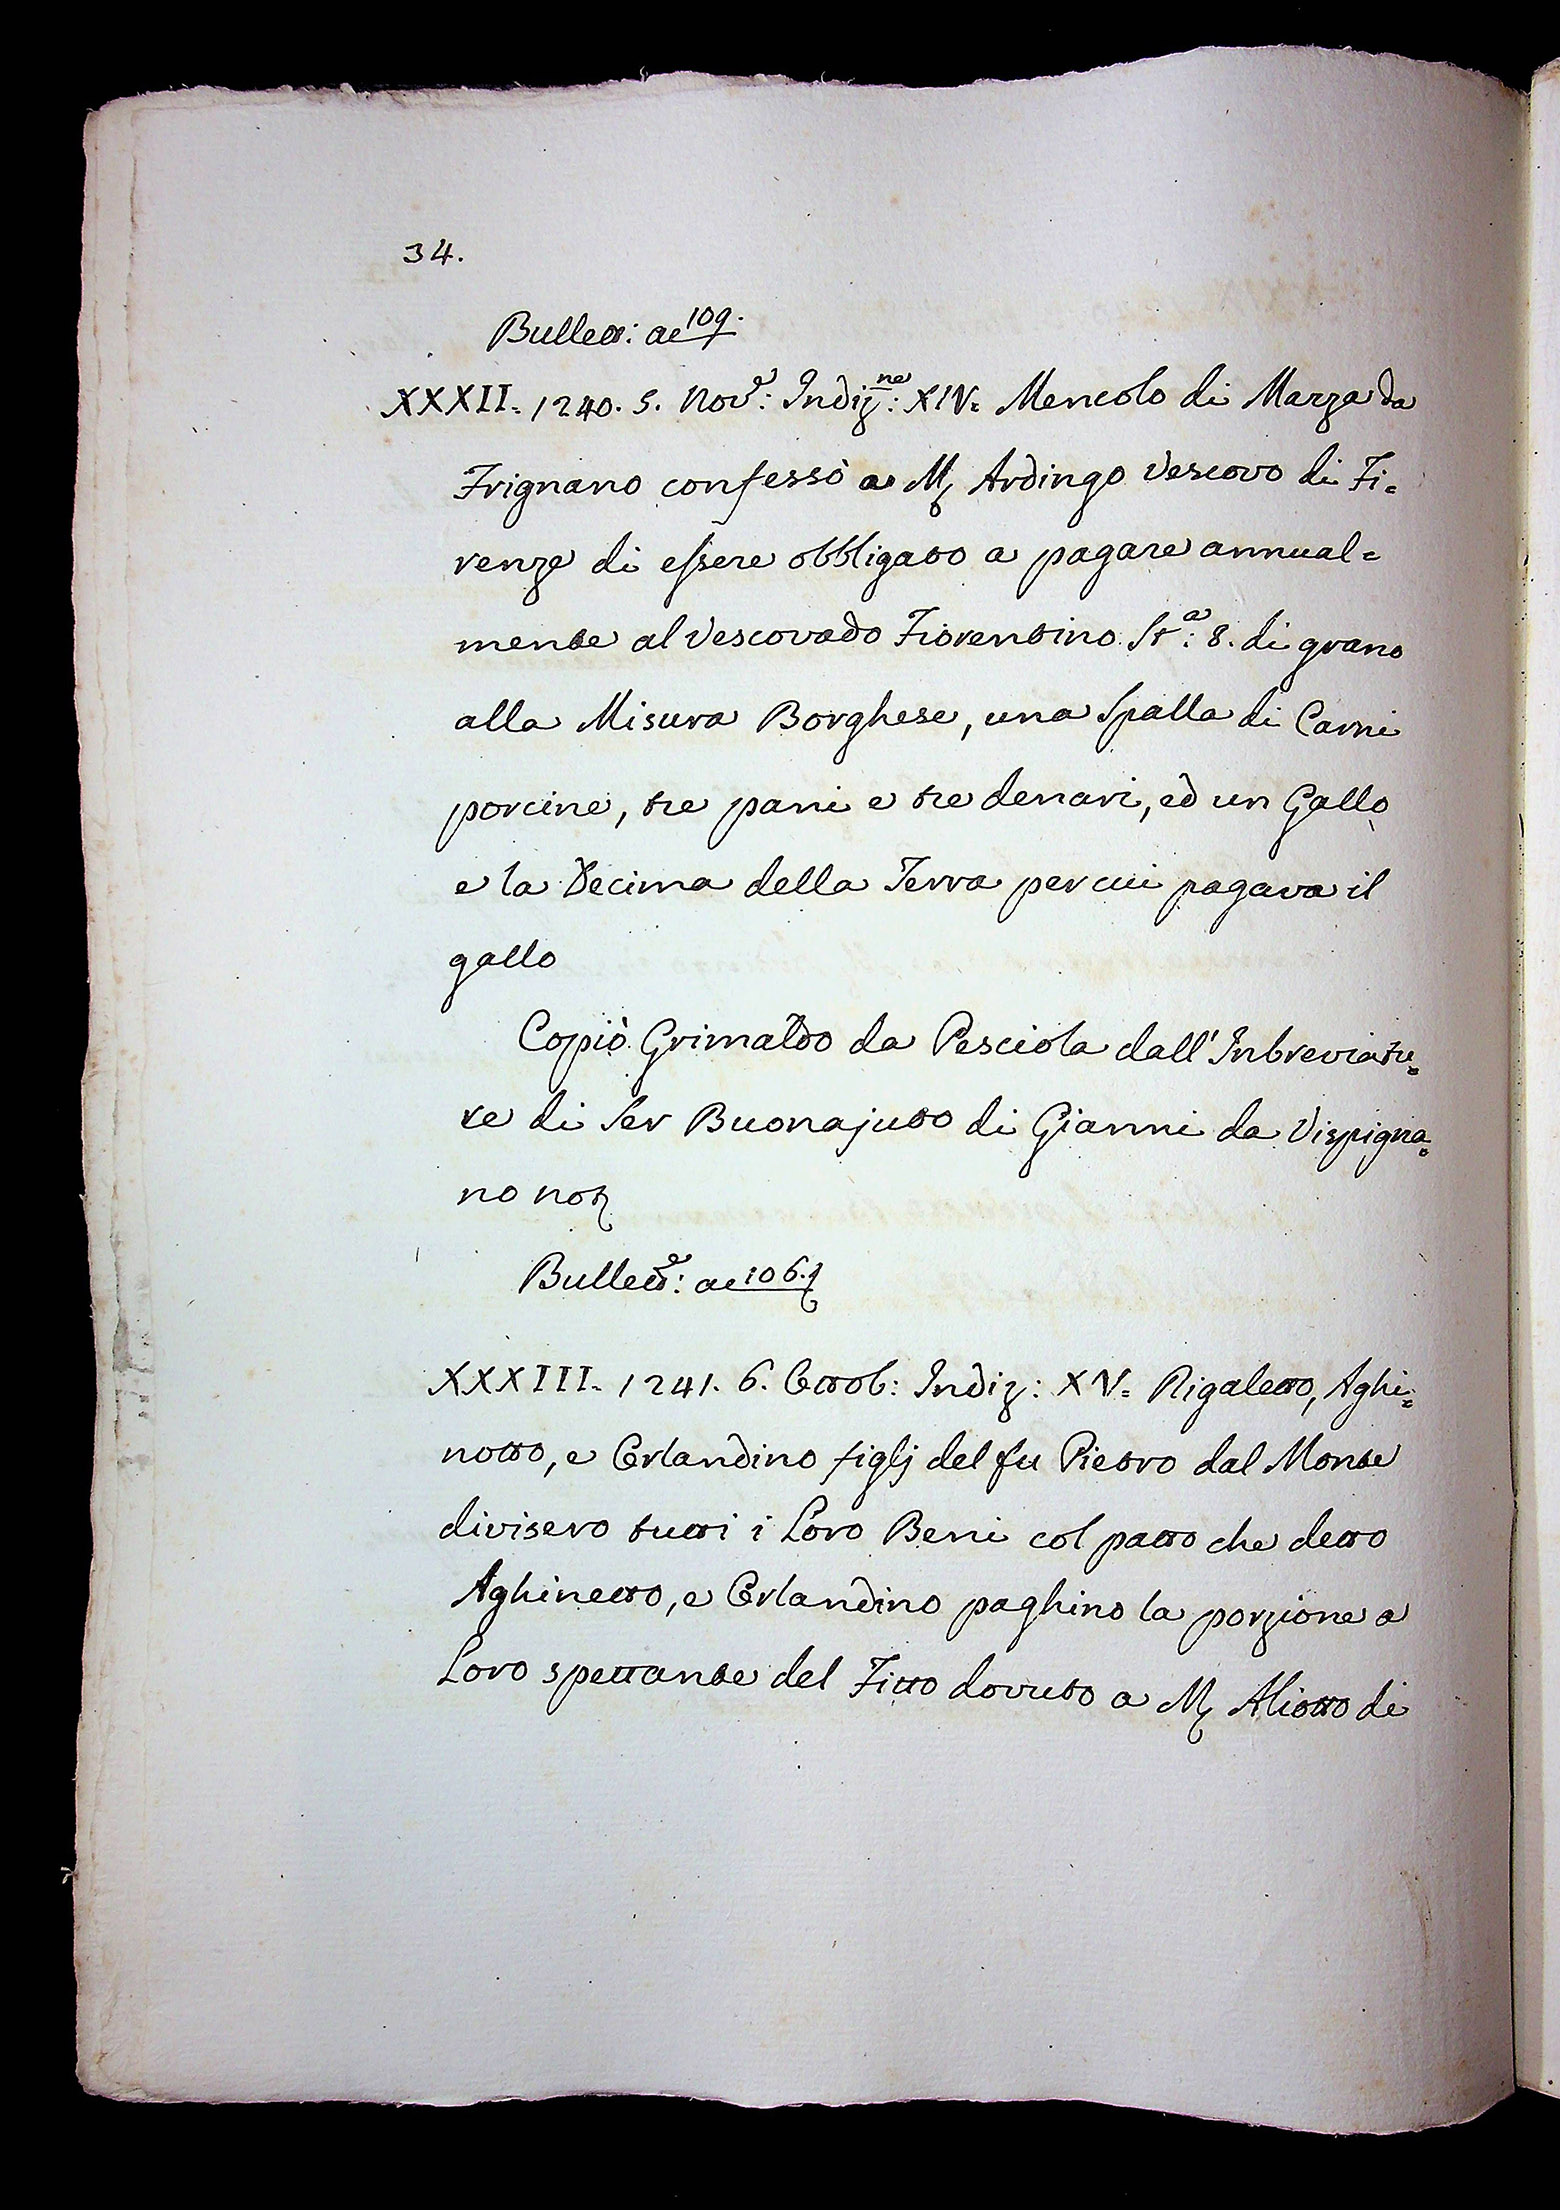 34.
Bullett: ac 109.
XXXII. 1240. 5. Nov.e: Indiz.ne: XIV. Mencolo di Marza da
Frignano confessò a M. Ardingo Vescovo di Fi=
renze di essere obbligato a pagare annual=
mente al Vescovado Fiorentino St.a: 8. di grano
alla Misura Borghese, una Spalla di Carni
porcine, tre pani e tre denari, ed un Gallo
e la Decima della Terra per cui pagava il
gallo
Copiò Grimaldo da Pesciola dall'Inbreviatu=
re di Ser Buonajuto di Gianni da Vispigna=
no not
Bullett.e: ac 106.t
XXXIII. 1241. 6. Ottob: Indiz: XV. Rigaletto, Aghi=
notto, e Orlandino figlj del fu Pietro dal Monte
divisero tutti i Loro Beni col patto che detto
Aghinetto, e Orlandino paghino la porzione a
Loro spettante del Fitto dovuto a M. Aliotto di